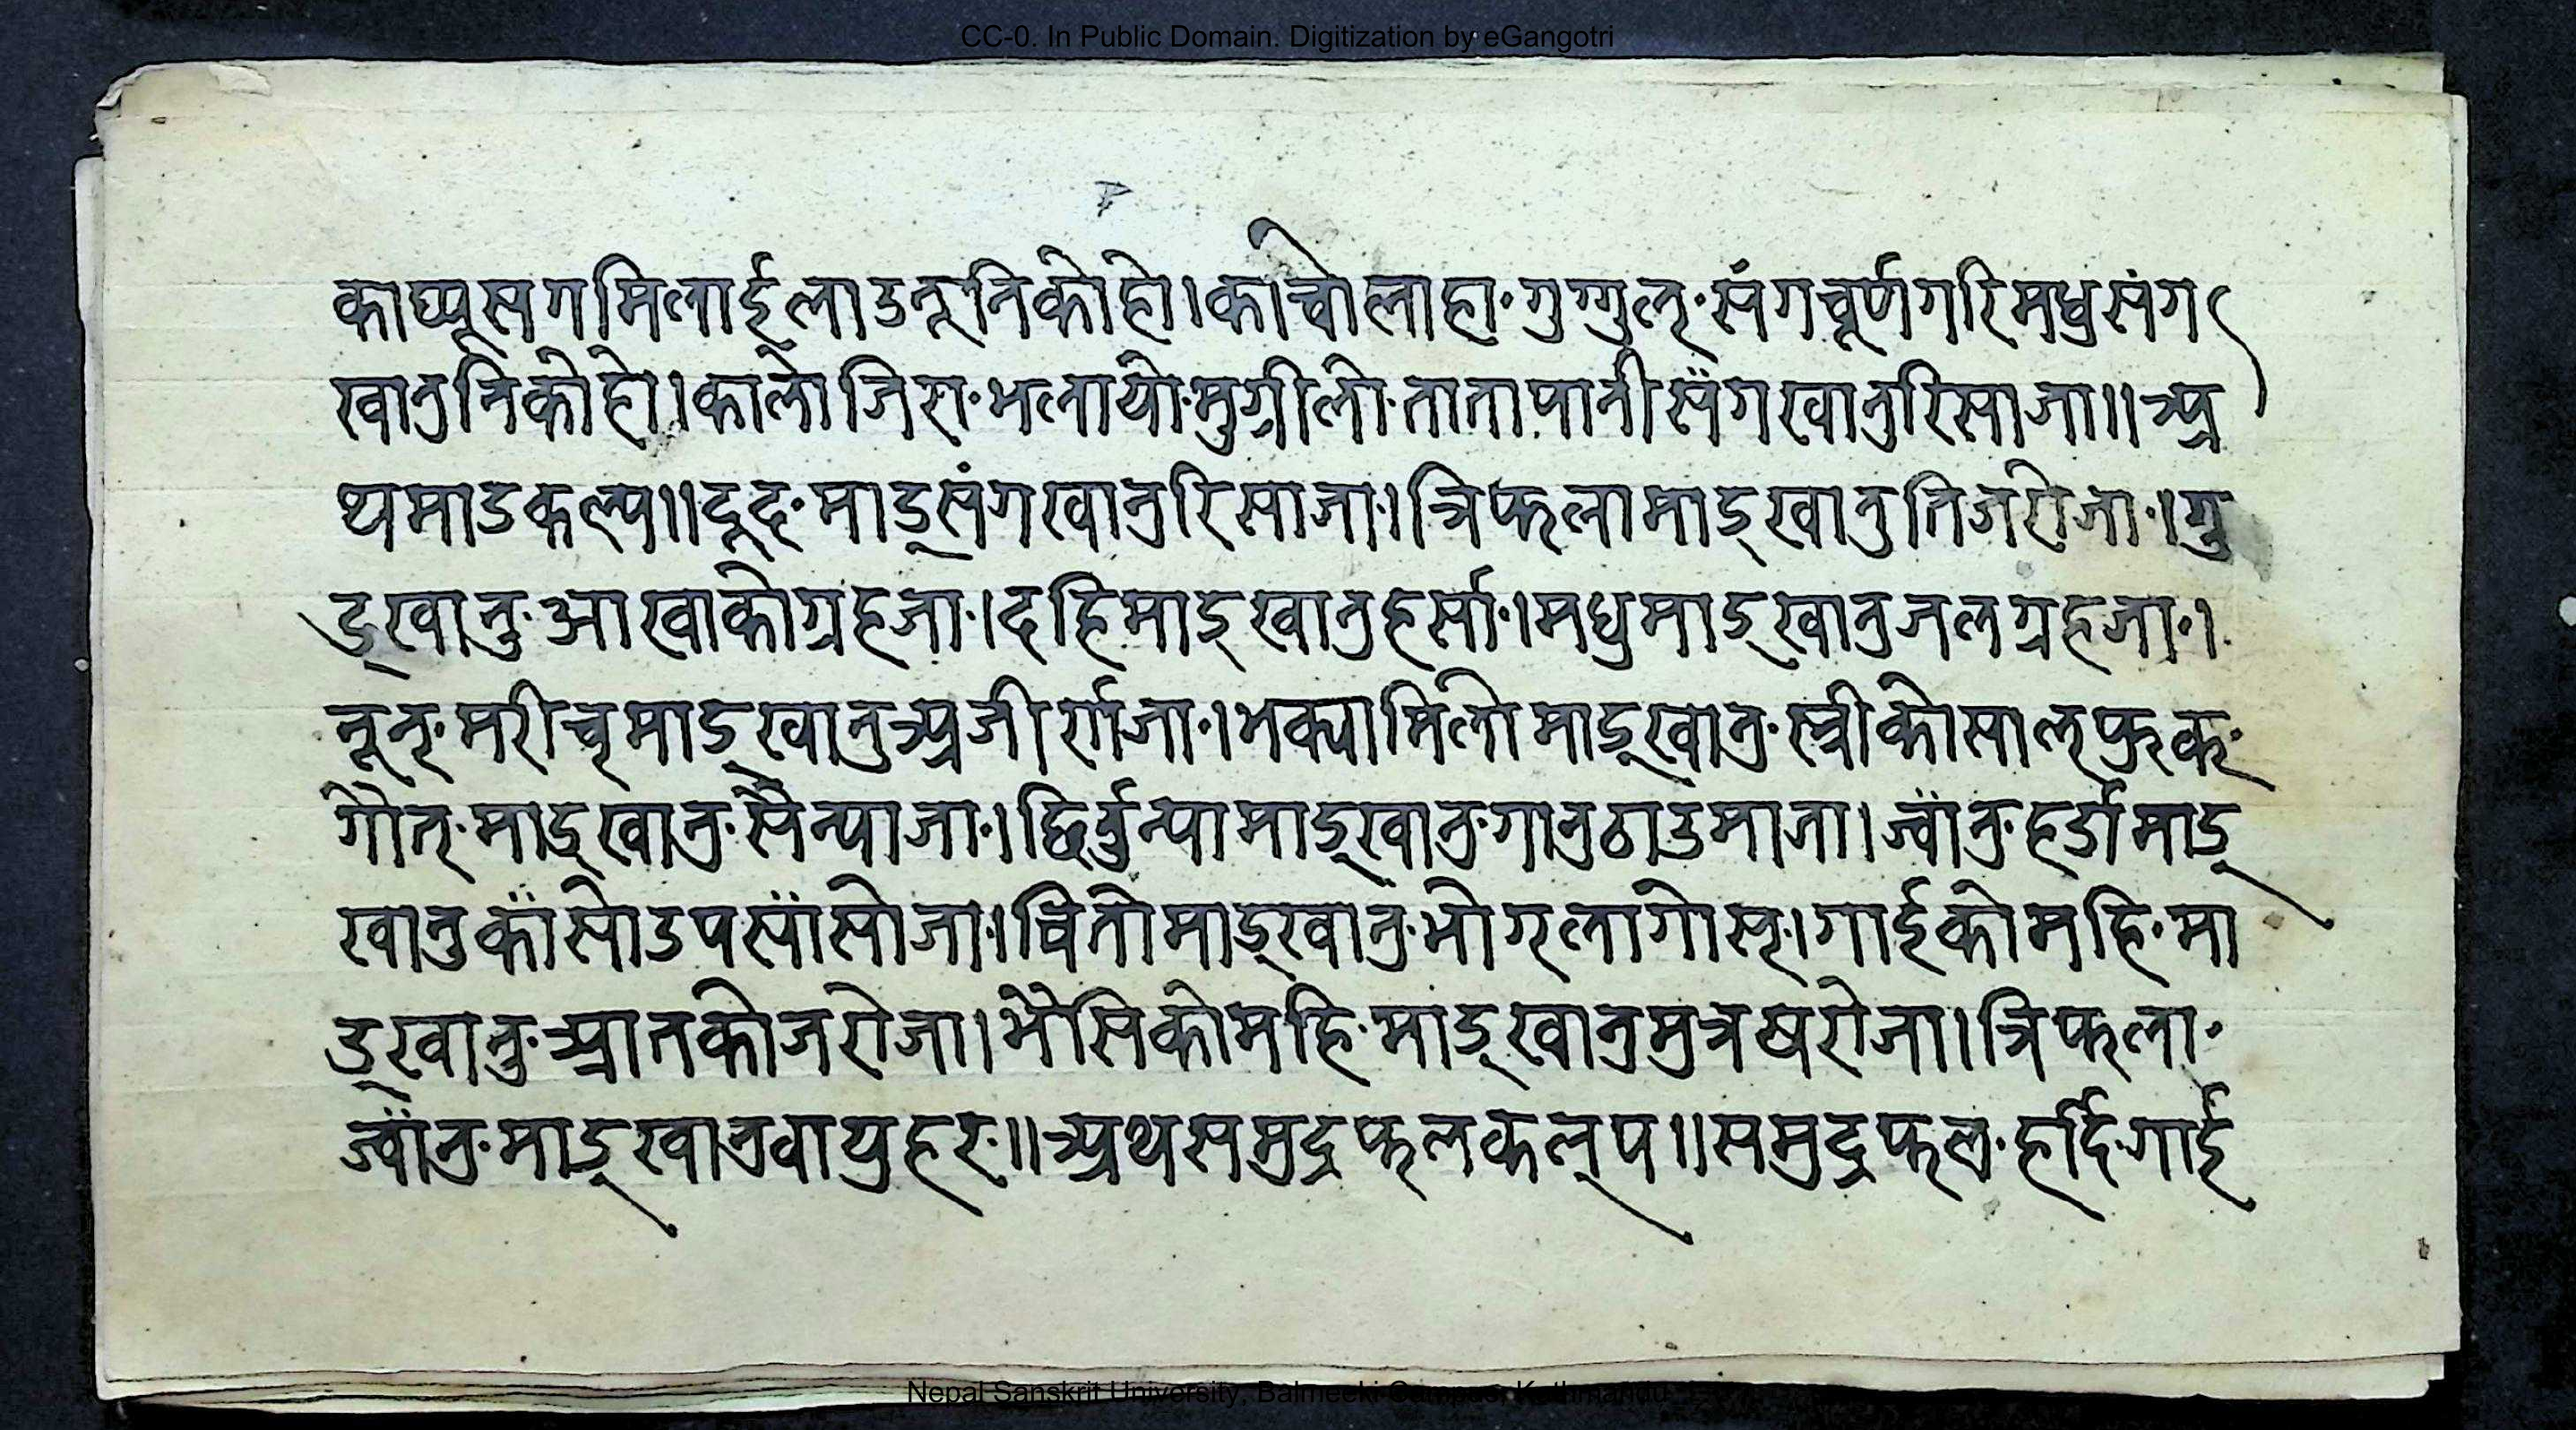 CC-0. In Public Domain. Digitization by eGangotri
काघ्यूसगमिलाईलाउनूनिकोहो।काचोलाहा·गुग्गुल्·संगचूर्णगरिमधुसंग
खानुनिकोहो।कालोजिरा·भलायो·मुग्रीलो·तातापानीसँगखानुरिसाजा॥अ
थमाडकल्प॥दूद·माड्संगखानुरिसाजा·।त्रिफलामाड्खानुतिजरोजा·।गु
ड्खानु·आखाकोग्रहजा·।दहिमाड्खानुहर्सा·।मधुमाड्खानुजलग्रहजा·।
नून्·मरीच्माड्खानुअजीर्णजा·।भक्यामिलोमाड्खानु·स्त्रीकोसाल्फुक·
गौत्·माड्खानु·सैन्पाजा·।द्विर्वुन्पामाड्खानुगानुठाउमाजा।ज्वाँनु·हर्डामाड्
खानुकाँसोउपसाँसोजा·।चितोमाड्खानु·भोग्लागोस्।गाईकोमहि·मा
ड्खानु·आतकोजरोजा।भैसिकोमहि·माड्खानुमुत्रषरोजा।त्रिफला·
ज्वाँनु·माड्खानुवायुहर·॥अथसमुद्रफलकल्प॥समुद्रफल·हर्दि·गाई
Nepal Sanskrit University, Balmeeki Campus, Kathmandu